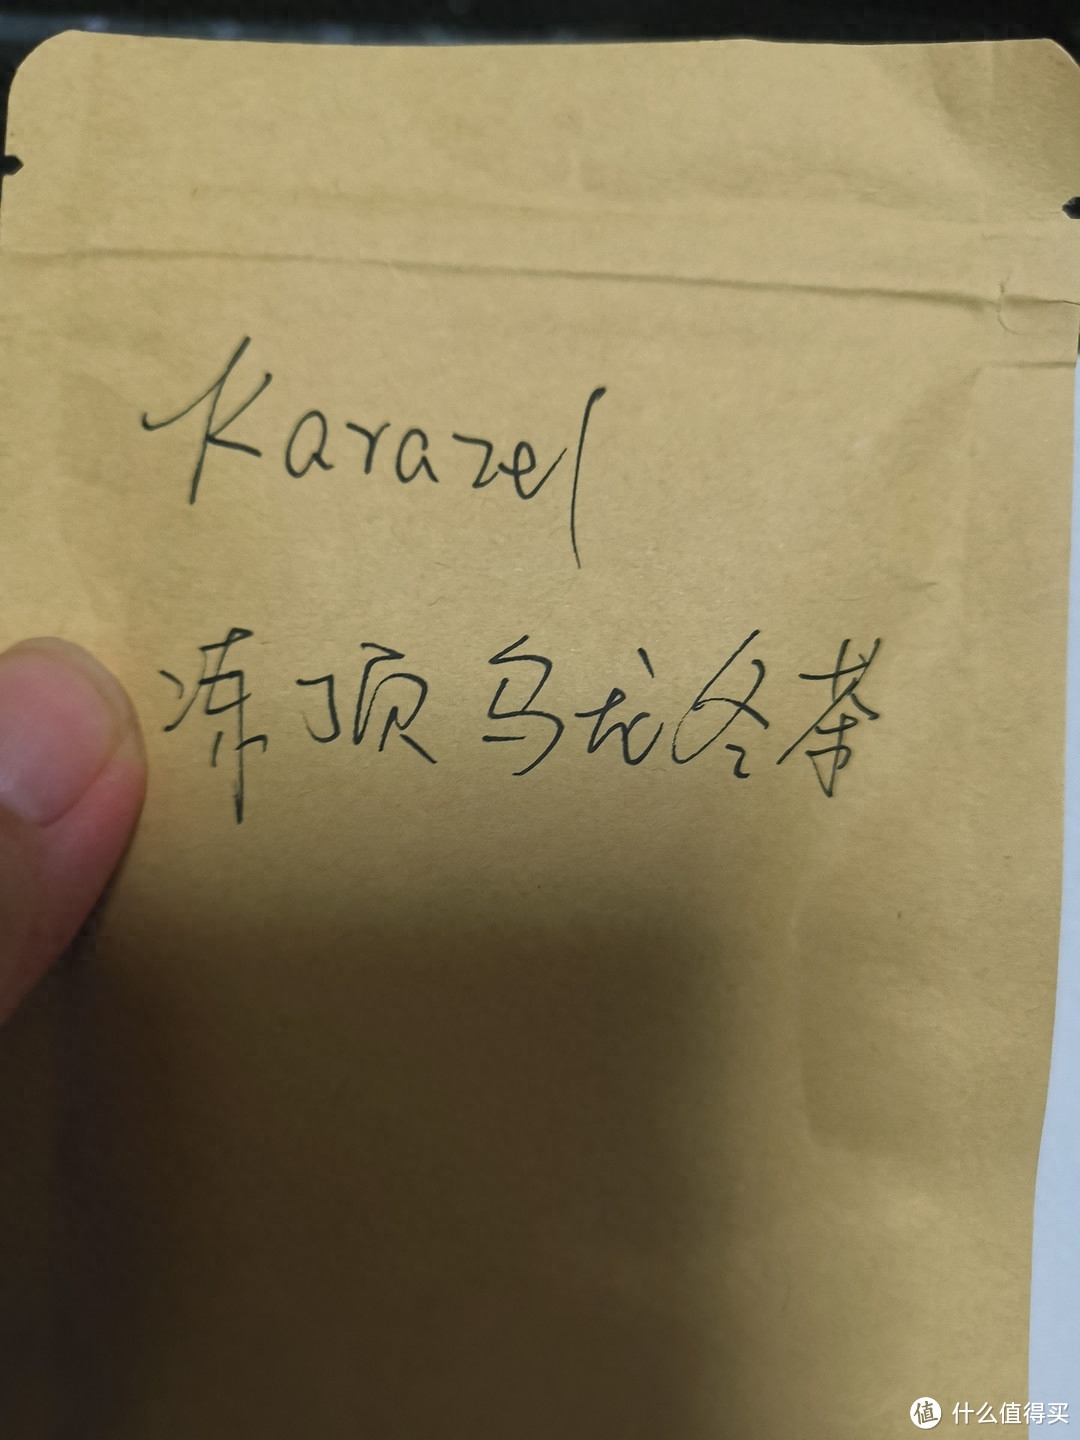 Karazel
冻顶乌龙冬茶
值 什么值得买